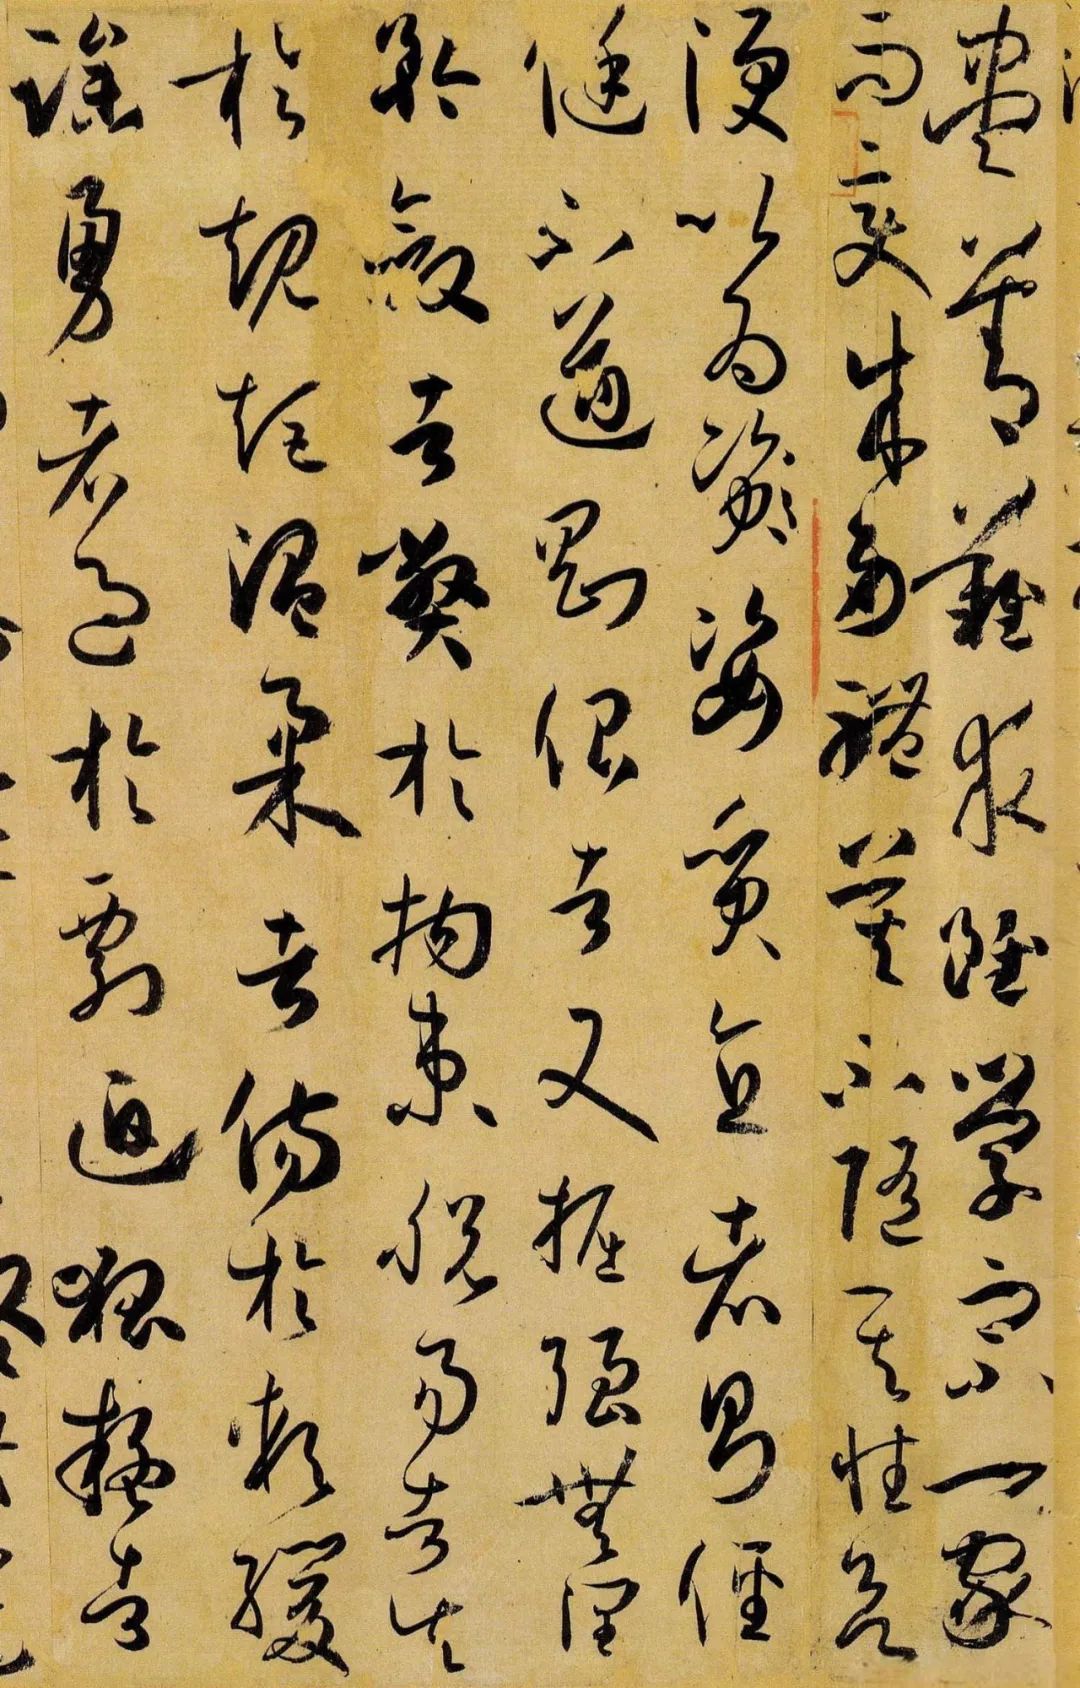 盡善難求雖學宗一家
而變成多體莫不隨其性欲
便以為資姿質直者則徑
侹不遒剛佷者又掘強無潤
矜斂者弊於拘束脫易者失
於規矩溫柔者傷於軟緩
躁勇者過於剽迫狐疑者